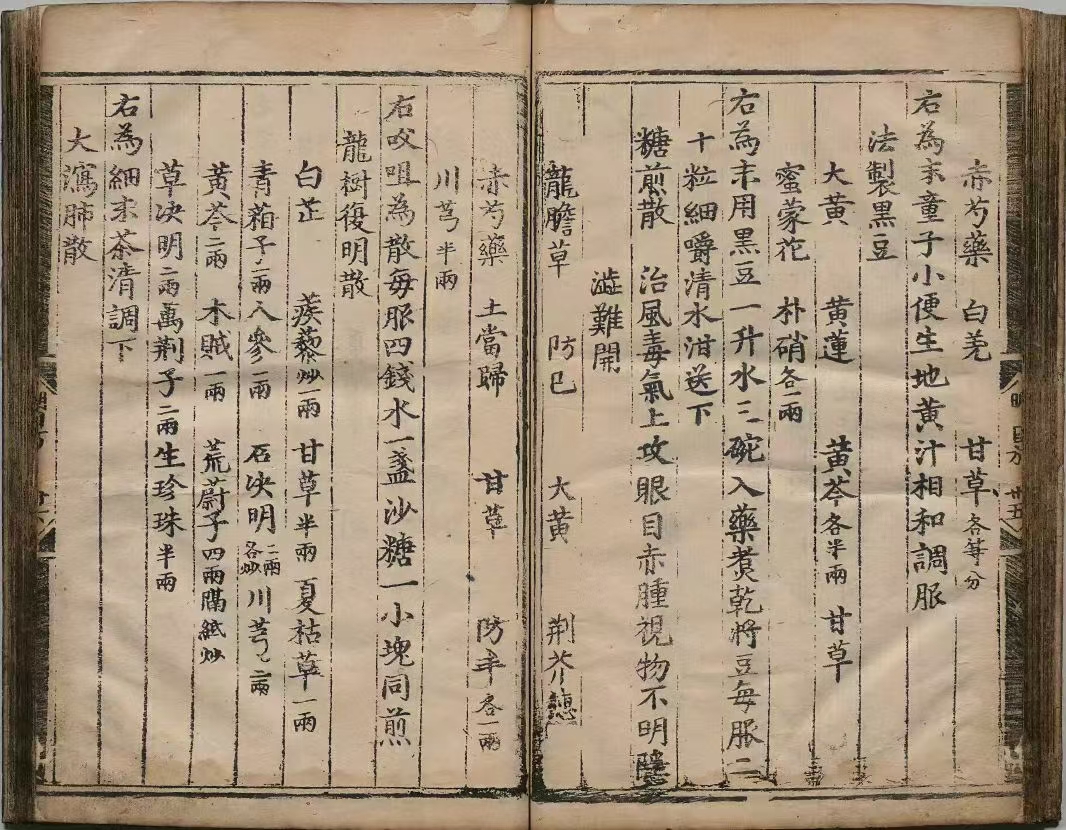 赤芍藥 白羌 甘草各等分
右為末童子小便生地黃汁相和調服
法製黑豆
大黃 黃蓮 黃芩各半兩 甘草
蜜蒙花 朴硝各一兩
右為末用黑豆一升水三碗入藥煑乾將豆每服二
十粒細嚼清水泔送下
糖煎散 治風毒氣上攻眼目赤腫視物不明隱
澁難開
龍膽草 防巳 大黃 荆芥穗
赤芍藥 土當歸 甘草 防丰各一兩
川芎半兩
右㕮咀為散每服四錢水一盞沙糖一小塊同煎
龍樹復明散
白芷 蒺藜炒一兩 甘草半兩 夏枯草一兩
青葙子二兩 人參一兩 石決明二兩各炒 川芎二兩
黃芩二兩 木賊一兩 茺蔚子四兩隔紙炒
草决明二兩 萬荆子二兩 生珍珠半兩
右為細末茶清調下
大瀉肺散
廿五